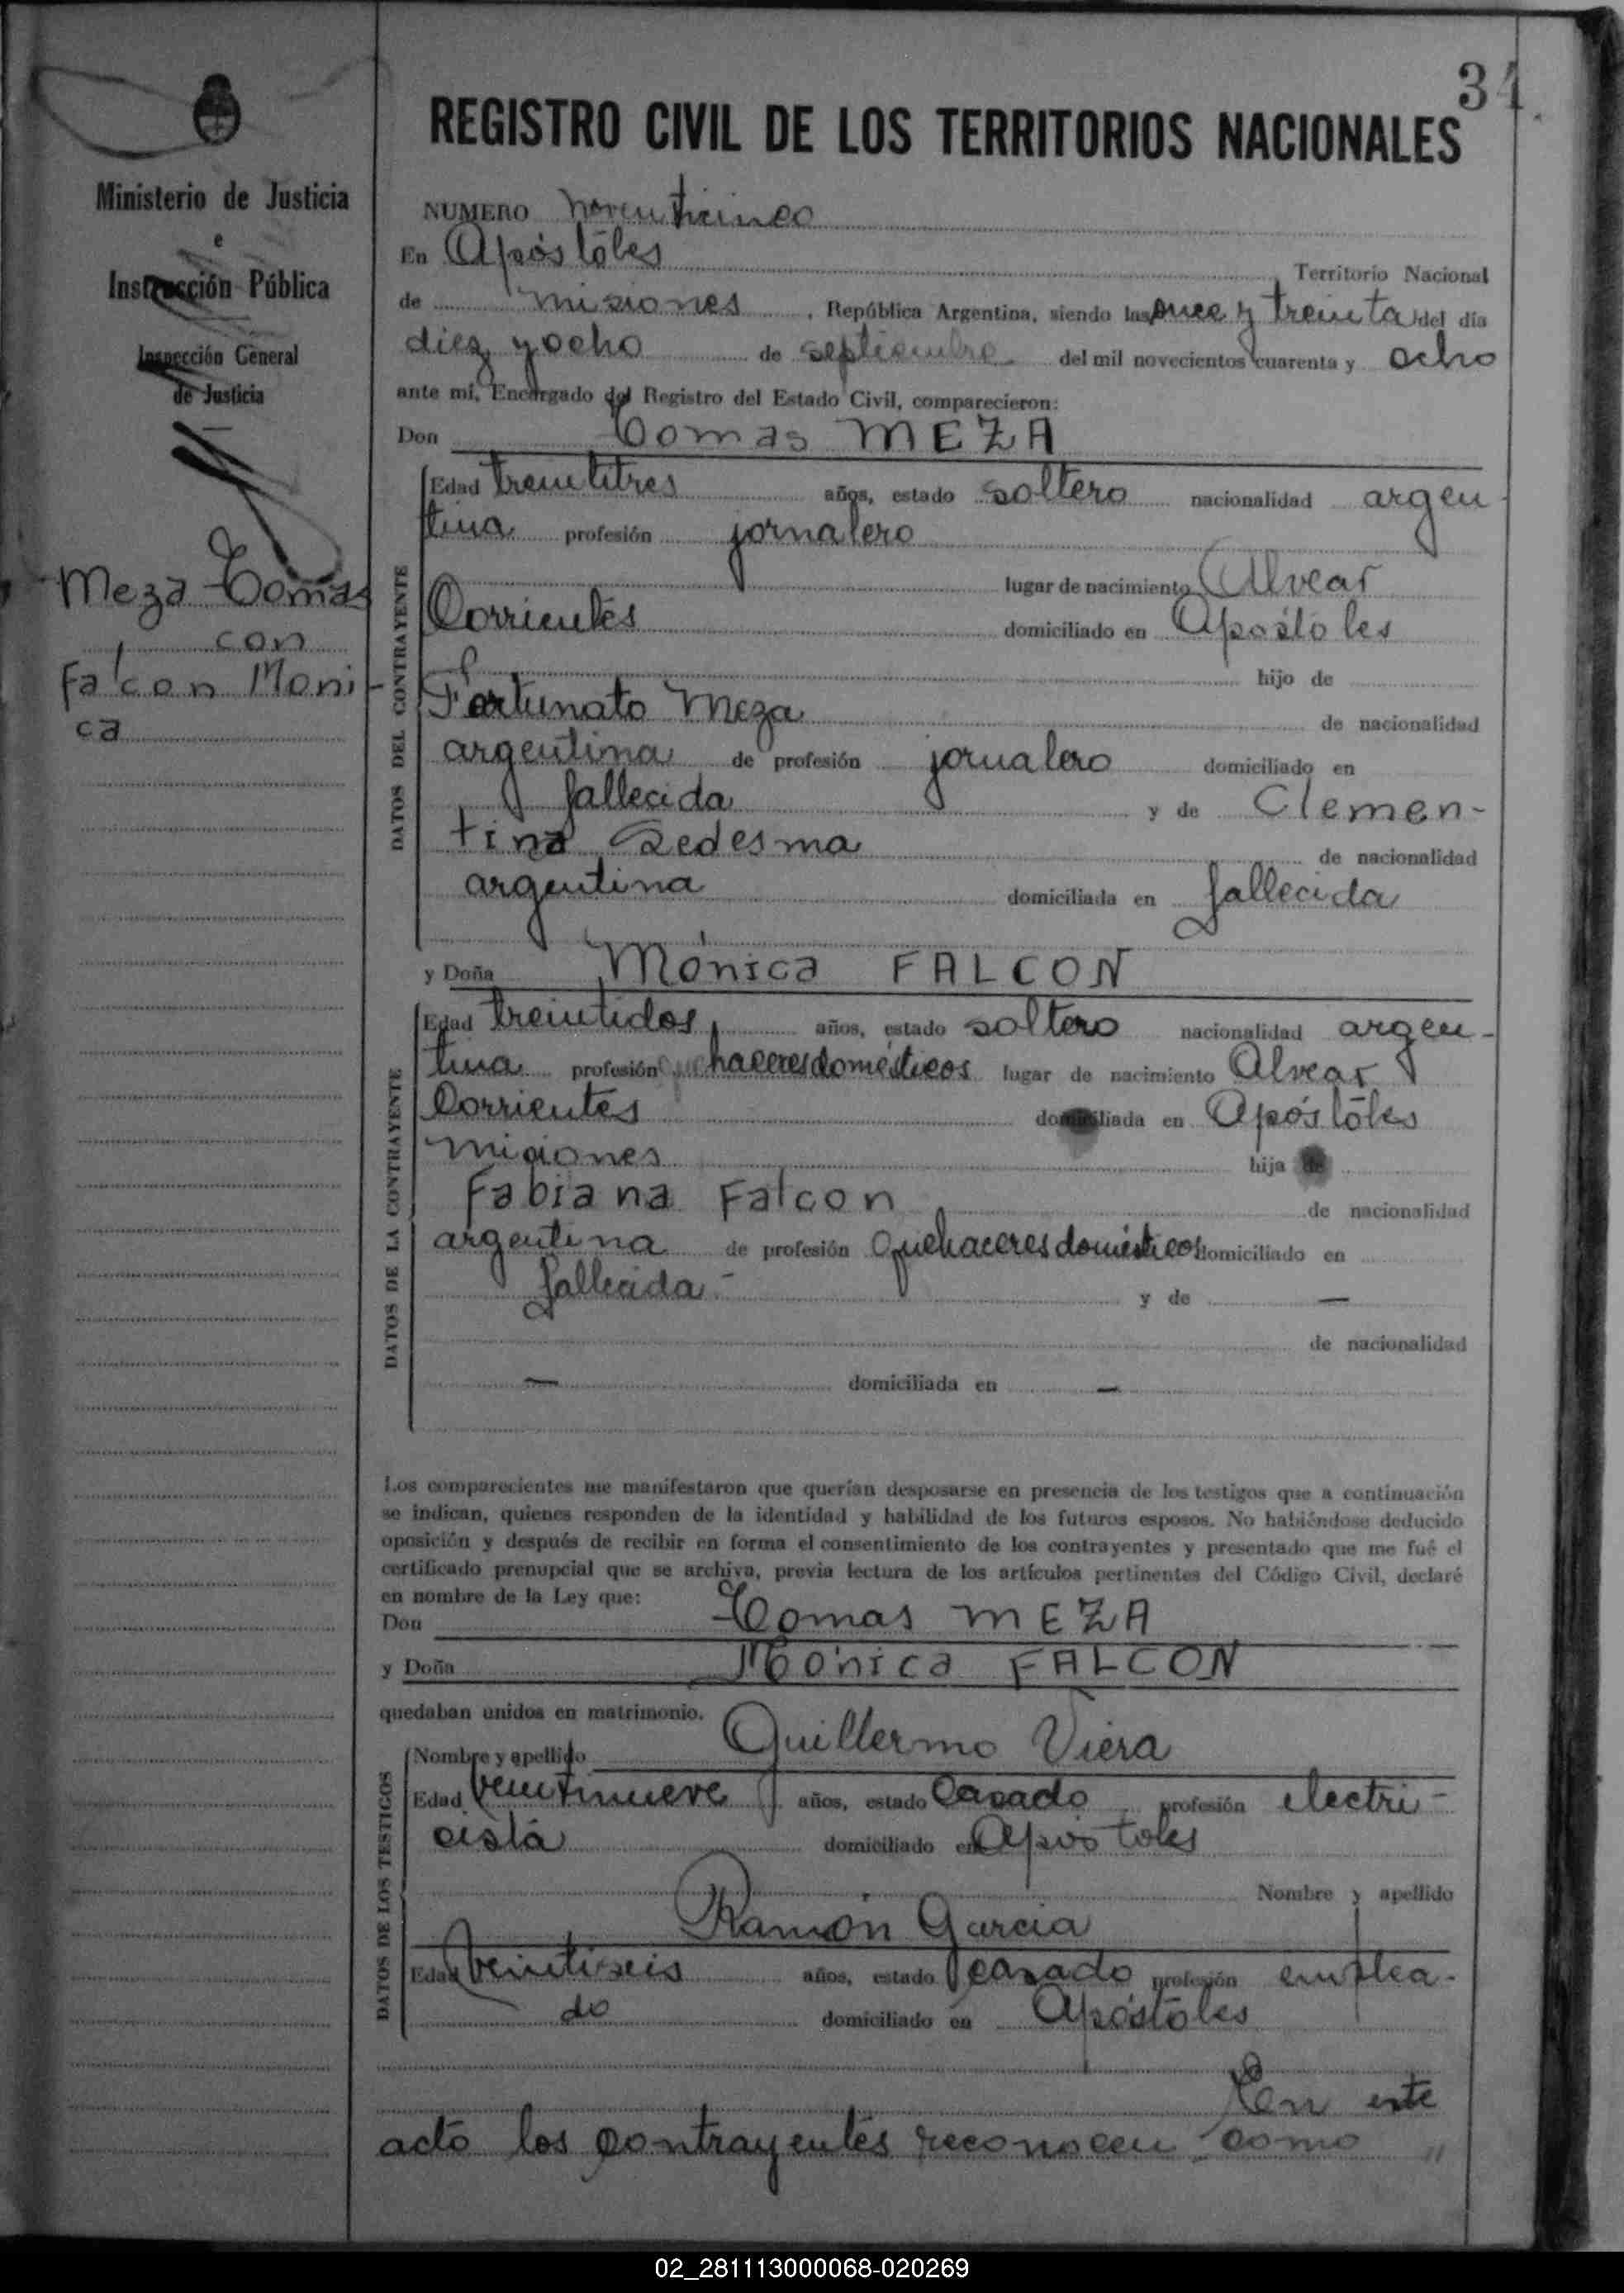 34
REGISTRO CIVIL DE LOS TERRITORIOS NACIONALES
Ministerio de Justicia
e
Instrucción Pública
Inspección General
de Justicia
Meza Tomas
con
Falcon Moni-
ca
NUMERO noventicinco
En Apóstoles Territorio Nacional
de misiones, República Argentina, siendo las once y treinta del día
diez y ocho de septiembre del mil novecientos cuarenta y ocho
ante mi, Encargado del Registro del Estado Civil, comparecieron:
Don Tomas MEZA
DATOS DEL CONTRAYENTE
Edad treintitres años, estado soltero nacionalidad argen-
tina profesión jornalero
lugar de nacimiento Alvear
Corrientes domiciliado en Apostoles
hijo de
Fortunato Meza de nacionalidad
argentina de profesión jornalero domiciliado en
fallecida y de Clemen-
tina Ledesma de nacionalidad
argentina domiciliada en fallecida
y Doña Mónica FALCON
DATOS DE LA CONTRAYENTE
Edad treintidos años, estado soltero nacionalidad argen-
tina profesión quehaceres domésticos lugar de nacimiento Alvear
Corrientes domiciliada en Apóstoles
misiones hija de
Fabiana Falcon de nacionalidad
argentina de profesión Quehaceres domésticos domiciliado en
fallecida - y de —
de nacionalidad
— domiciliada en —
Los comparecientes me manifestaron que querían desposarse en presencia de los testigos que a continuación
se indican, quienes responden de la identidad y habilidad de los futuros esposos. No habiéndose deducido
oposición y después de recibir en forma el consentimiento de los contrayentes y presentado que me fué el
certificado prenupcial que se archiva, previa lectura de los artículos pertinentes del Código Civil, declaré
en nombre de la Ley que:
Don Tomas MEZA
y Doña Mónica FALCON
quedaban unidos en matrimonio.
DATOS DE LOS TESTIGOS
Nombre y apellido Guillermo Viera
Edad veintinueve años, estado Casado profesión electri-
cista domiciliado en Apostoles
Nombre y apellido
Ramón Garcia
Edad veintiseis años, estado casado profesión emplea-
do domiciliado en Apóstoles
En este
acto los contrayentes reconocen como "
02_281113000068-020269